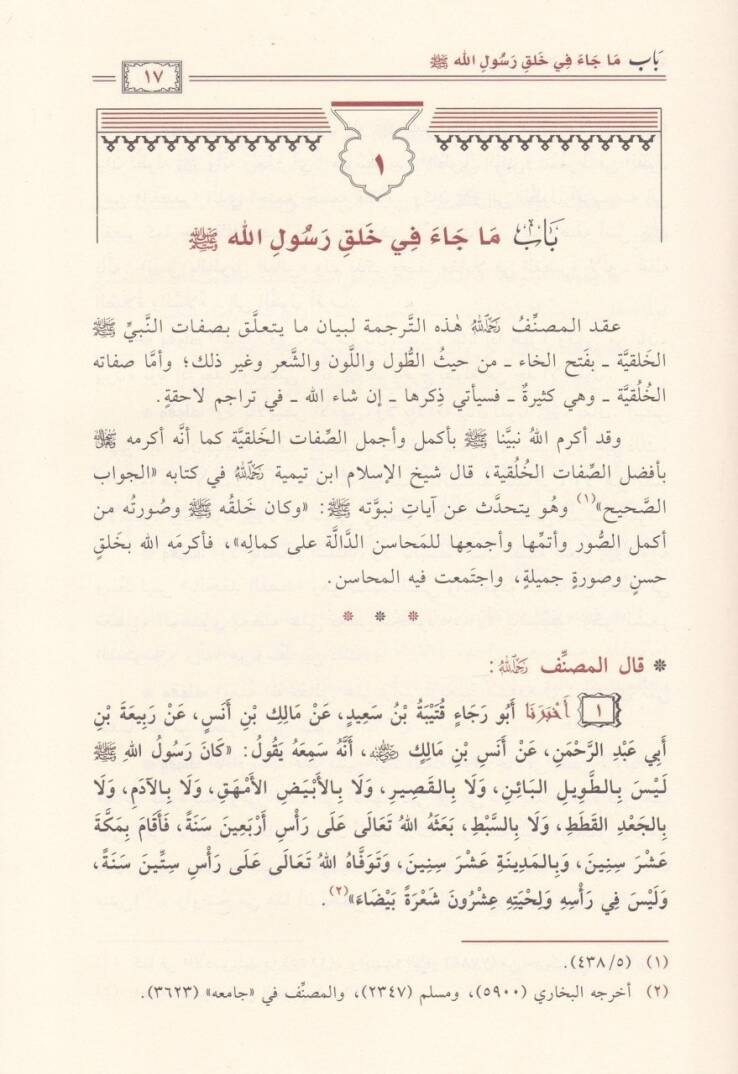 بَاب مَا جَاءَ فِي خَلقِ رَسُولِ الله ﷺ
١٧
١
بَابُ مَا جَاءَ فِي خَلقِ رَسُولِ الله ﷺ
عقد المصنِّفُ رَحِمَهُ اللهُ هٰذه التَّرجمة لبيان ما يتعلَّق بصفات النَّبيِّ ﷺ
الخَلقيَّة ـ بفَتح الخاء ـ من حيثُ الطُّول واللَّون والشَّعر وغير ذلك؛ وأمَّا صفاته
الخُلُقيَّة ـ وهي كثيرةٌ ـ فسيأتي ذِكرها ـ إن شاء الله ـ في تراجم لاحقةٍ.
وقد أكرم اللهُ نبيَّنا ﷺ بأكمل وأجمل الصِّفات الخَلقيَّة كما أنَّه أكرمه ﷺ
بأفضل الصِّفات الخُلُقية، قال شيخ الإسلام ابن تيمية رَحِمَهُ اللهُ في كتابه «الجواب
الصَّحيح»(١) وهُو يتحدَّث عن آياتِ نبوَّته ﷺ: «وكان خَلقُه ﷺ وصُورتُه من
أكمل الصُّور وأتمِّها وأجمعِها للمَحاسن الدَّالَّة على كمالِه»، فأكرمَه الله بخَلقٍ
حسنٍ وصورةٍ جميلةٍ، واجتَمعت فيه المحاسن.
* * *
* قال المصنِّف رَحِمَهُ اللهُ:
١ أَخْبَرَنَا أَبُو رَجَاءٍ قُتَيْبَةُ بْنُ سَعِيدٍ، عَنْ مَالِكِ بْنِ أَنَسٍ، عَنْ رَبِيعَةَ بْنِ
أَبِي عَبْدِ الرَّحْمَنِ، عَنْ أَنَسِ بْنِ مَالِكٍ رَضِيَ اللهُ عَنْهُ، أَنَّهُ سَمِعَهُ يَقُولُ: «كَانَ رَسُولُ اللهِ ﷺ
لَيْسَ بِالطَّوِيلِ البَائِنِ، وَلَا بِالقَصِيرِ، وَلَا بِالأَبْيَضِ الأَمْهَقِ، وَلَا بِالآدَمِ، وَلَا
بِالجَعْدِ القَطَطِ، وَلَا بِالسَّبْطِ، بَعَثَهُ اللهُ تَعَالَى عَلَى رَأْسِ أَرْبَعِينَ سَنَةً، فَأَقَامَ بِمَكَّةَ
عَشْرَ سِنِينَ، وَبِالمَدِينَةِ عَشْرَ سِنِينَ، وَتَوَفَّاهُ اللهُ تَعَالَى عَلَى رَأْسِ سِتِّينَ سَنَةً،
وَلَيْسَ فِي رَأْسِهِ وَلِحْيَتِهِ عِشْرُونَ شَعْرَةً بَيْضَاءَ»(٢).
(١) (٤٣٨/٥).
(٢) أخرجه البخاري (٥٩٠٠)، ومسلم (٢٣٤٧)، والمصنِّف في «جامعه» (٣٦٢٣).